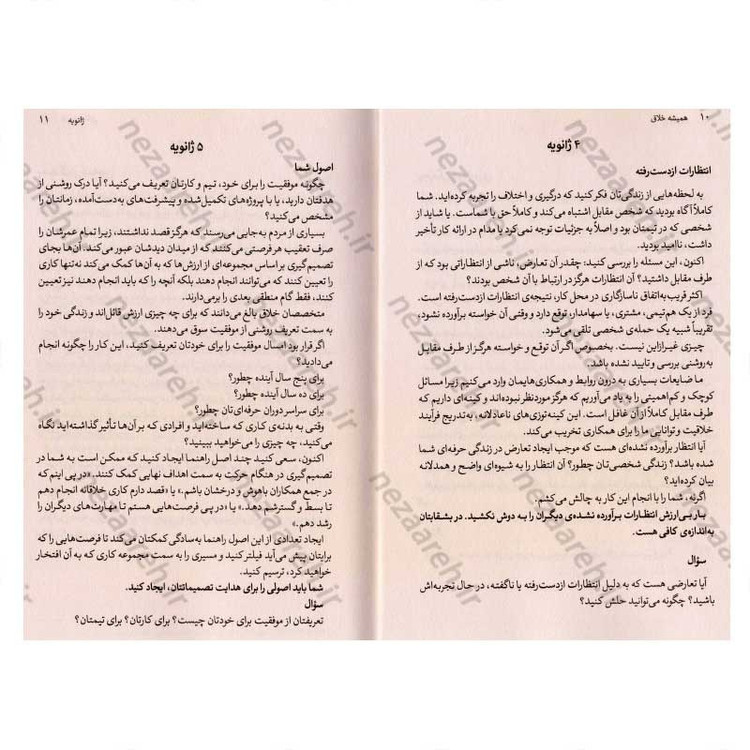 ۱۰ همیشه خلاق
۴ ژانویه
انتظارات ازدست‌رفته
به لحظه‌هایی از زندگی‌تان فکر کنید که درگیری و اختلاف را تجربه کرده‌اید. شما
کاملاً آگاه بودید که شخص مقابل اشتباه می‌کند و کاملاً حق با شماست. یا شاید از
شخصی که در تیمتان بود و اصلاً به جزئیات توجه نمی‌کرد یا مدام در ارائه کار تأخیر
داشت، ناامید بودید.
اکنون، این مسئله را بررسی کنید: چقدر آن تعارض، ناشی از انتظاراتی بود که از
طرف مقابل داشتید؟ آن انتظارات هرگز در ارتباط با آن شخص بودند؟
اکثر قریب‌به‌اتفاق ناسازگاری در محل کار، نتیجه‌ی انتظارات ازدست‌رفته است.
فرد از یک هم‌تیمی، مشتری، یا سهامدار، توقع دارد و وقتی آن خواسته برآورده نشود،
تقریباً شبیه یک حمله‌ی شخصی تلقی می‌شود.
چیزی غیرازاین نیست. بخصوص اگر آن توقع و خواسته هرگز از طرف مقابل
به‌روشنی بررسی و تایید نشده باشد.
ما ضایعات بسیاری به درون روابط و همکاری‌هایمان وارد می‌کنیم زیرا مسائل
کوچک و کم‌اهمیتی را به یاد می‌آوریم که هرگز موردنظر نبوده‌اند و کینه‌ای داریم که
طرف مقابل کاملاً از آن غافل است. این کینه‌توزی‌های ناعادلانه، به‌تدریج فرآیند
خلاقیت و توانایی ما را برای همکاری تخریب می‌کند.
آیا انتظار برآورده نشده‌ای هست که موجب ایجاد تعارض در زندگی حرفه‌ای شما
شده باشد؟ زندگی شخصی‌تان چطور؟ آن انتظار را به شیوه‌ای واضح و همدلانه
بیان کرده‌اید؟
اگر نه، شما را با انجام این کار به چالش می‌کشم.
بار بی‌ارزش انتظارات برآورده نشده‌ی دیگران را به دوش نکشید. در بشقابتان
به‌اندازه‌ی کافی هست.
سؤال
آیا تعارضی هست که به دلیل انتظارات ازدست‌رفته یا ناگفته، در حال تجربه‌اش
باشید؟ چگونه می‌توانید حلش کنید؟
ژانویه ۱۱
۵ ژانویه
اصول شما
چگونه موفقیت را برای خود، تیم و کارتان تعریف می‌کنید؟ آیا درک روشنی از
هدفتان دارید، یا با پروژه‌های تکمیل‌شده و پیشرفت‌های به‌دست‌آمده، زمانتان را
مشخص می‌کنید؟
بسیاری از مردم به‌جایی می‌رسند که هرگز قصد نداشتند، زیرا تمام عمرشان را
صرف تعقیب هر فرصتی می‌کنند که از میدان دیدشان عبور می‌کند. آن‌ها بجای
تصمیم‌گیری بر اساس مجموعه‌ای از ارزش‌ها که به آن‌ها کمک می‌کند نه‌تنها کاری
را تعیین کنند که می‌توانند انجام دهند بلکه آنچه را که باید انجام دهند نیز تعیین
کنند، فقط گام منطقی بعدی را برمی‌دارند.
متخصصان خلاق بالغ می‌دانند که برای چه چیزی ارزش قائل‌اند و زندگی خود را
به سمت تعریف روشنی از موفقیت سوق می‌دهند.
اگر قرار بود امسال موفقیت را برای خودتان تعریف کنید، این کار را چگونه انجام
می‌دادید؟
برای پنج سال آینده چطور؟
برای ده سال آینده چطور؟
برای سراسر دوران حرفه‌ای‌تان چطور؟
وقتی به بدنه‌ی کاری که ساخته‌اید و افرادی که بر آن‌ها تأثیر گذاشته‌اید نگاه
می‌کنید، چه چیزی را می‌خواهید ببینید؟
اکنون، سعی کنید چند اصل راهنما ایجاد کنید که ممکن است به شما در
تصمیم‌گیری در هنگام حرکت به سمت اهداف نهایی کمک کنند. «در پی اینم که
در جمع همکاران باهوش و درخشان باشم.» یا «قصد دارم کاری خلاقانه انجام دهم
تا بسط و گسترشم دهد.» یا «در پی فرصت‌هایی هستم تا مهارت‌های دیگران را
رشد دهم.»
ایجاد تعدادی از این اصول راهنما به‌سادگی کمکتان می‌کند تا فرصت‌هایی را که
برایتان پیش می‌آید فیلتر کنید و مسیری را به سمت مجموعه کاری که به آن افتخار
خواهید کرد، ترسیم کنید.
شما باید اصولی را برای هدایت تصمیماتتان، ایجاد کنید.
سؤال
تعریفتان از موفقیت برای خودتان چیست؟ برای کارتان؟ برای تیمتان؟
nezaareh.ir